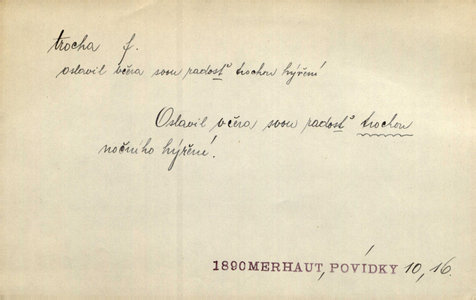 trocha f.
oslavil včera svou radosť trochou hýření
Oslavil včera svou radosť trochou
nočního hýření.
1890 MERHAUT, POVÍDKY 10, 16.